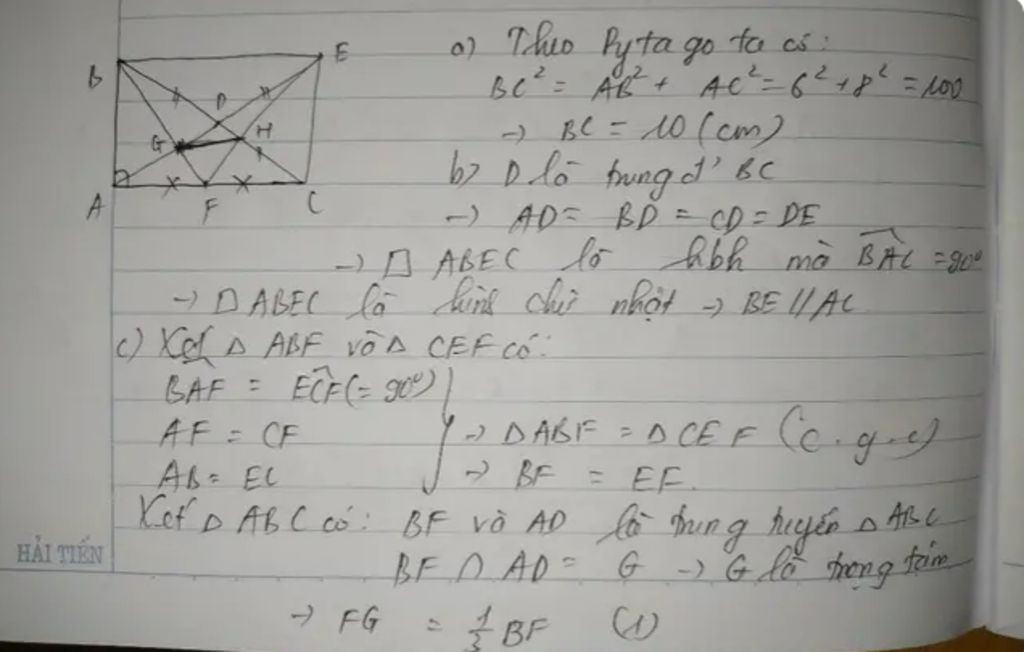 B
E
D
G
H
A
F
C
a) Theo Pytago ta có:
BC² = AB² + AC² = 6² + 8² = 100
→ BC = 10 (cm)
b) D là trung đ' BC
→ AD = BD = CD = DE
→ □ ABEC là hbh mà BAC = 90°
→ □ ABEC là hình chữ nhật → BE // AC
c) Xét Δ ABF và Δ CEF có:
BAF = ECF (= 90°)
AF = CF → Δ ABF = Δ CEF (c.g.c)
AB = EC → BF = EF.
Xét Δ ABC có: BF và AD là trung tuyến Δ ABC
BF ∩ AD = G → G là trọng tâm
HẢI TIẾN
→ FG = 1/3 BF (1)